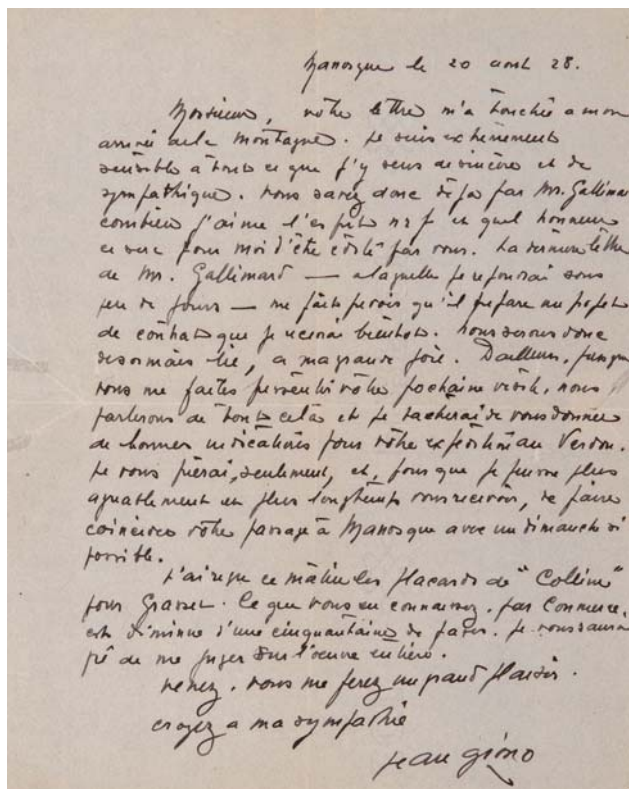 Manosque le 20 aout 28.
Monsieur, votre lettre m'a touché a mon
arrivée de la montagne. Je suis extrêmement
sensible à tout ce que j'y sens de sincère et de
sympathique. Vous savez donc déja par Mr. Gallimard
combien j'aime l'esprit nrf et quel honneur
ce sera pour moi d'être édité par vous. La dernière lettre
de Mr. Gallimard — a laquelle je repondrai sous
peu de jours — me fait prévoir qu'il prépare un projet
de contrat que je recevrai bientot. Nous serons donc
desormais lié, a ma grande joie. D'ailleurs, puisque
vous me faites pressentir votre prochaine visite, nous
parlerons de tout celà et je tacherai de vous donner
de bonnes indications pour votre expédition au Verdon.
Je vous prierai, seulement, et, pour que je puisse plus
agréablement et plus longtemps vous recevoir, de faire
coincider votre passage à Manosque avec un dimanche si
possible.
J'ai reçu ce matin les placards de "Colline"
pour Grasset. Ce que vous en connaissez, par Commerce,
est diminué d'une cinquantaine de pages. Je vous saurai
gré de me juger sur l'oeuvre entière.
Venez. Vous me ferez un grand plaisir.
croyez a ma sympathie
Jean Giono